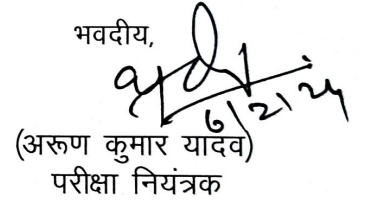 भवदीय,
(अरूण कुमार यादव)
परीक्षा नियंत्रक